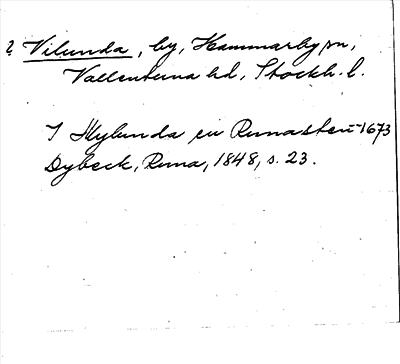 ? Vilunda, by, Hammarby sn,
Vallentuna hd, Stockh. l.
I Hylunda en Runasten 1673
Dybeck, Runa, 1848, s. 23.